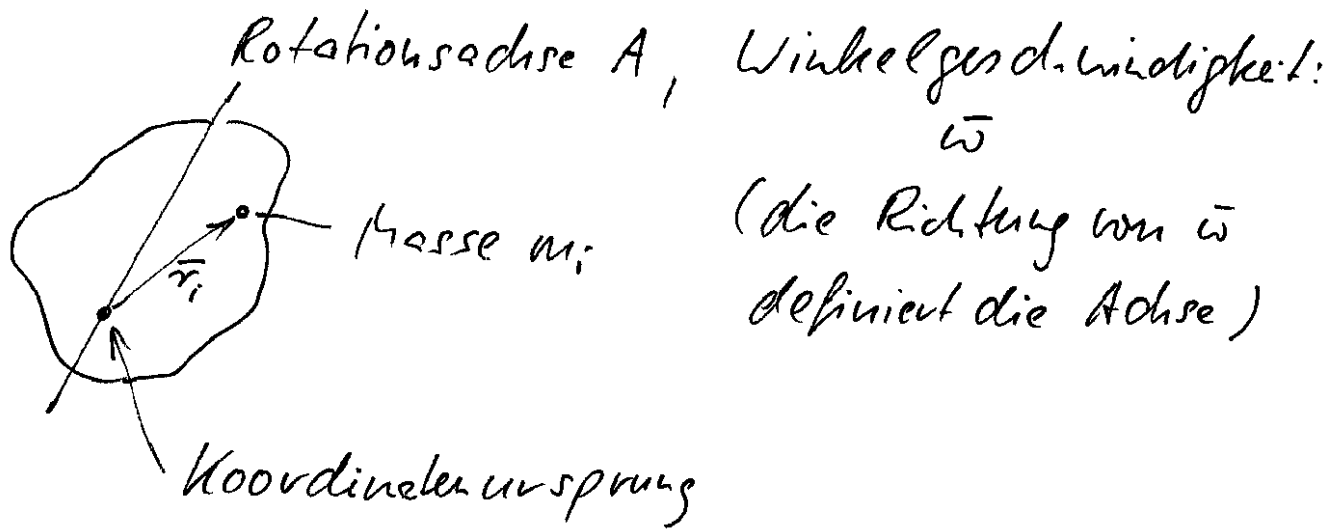 Rotationsachse A, Winkelgeschwindigkeit:
ω̄
(die Richtung von ω̄
definiert die Achse)
Masse mᵢ
r̄ᵢ
Koordinatenursprung